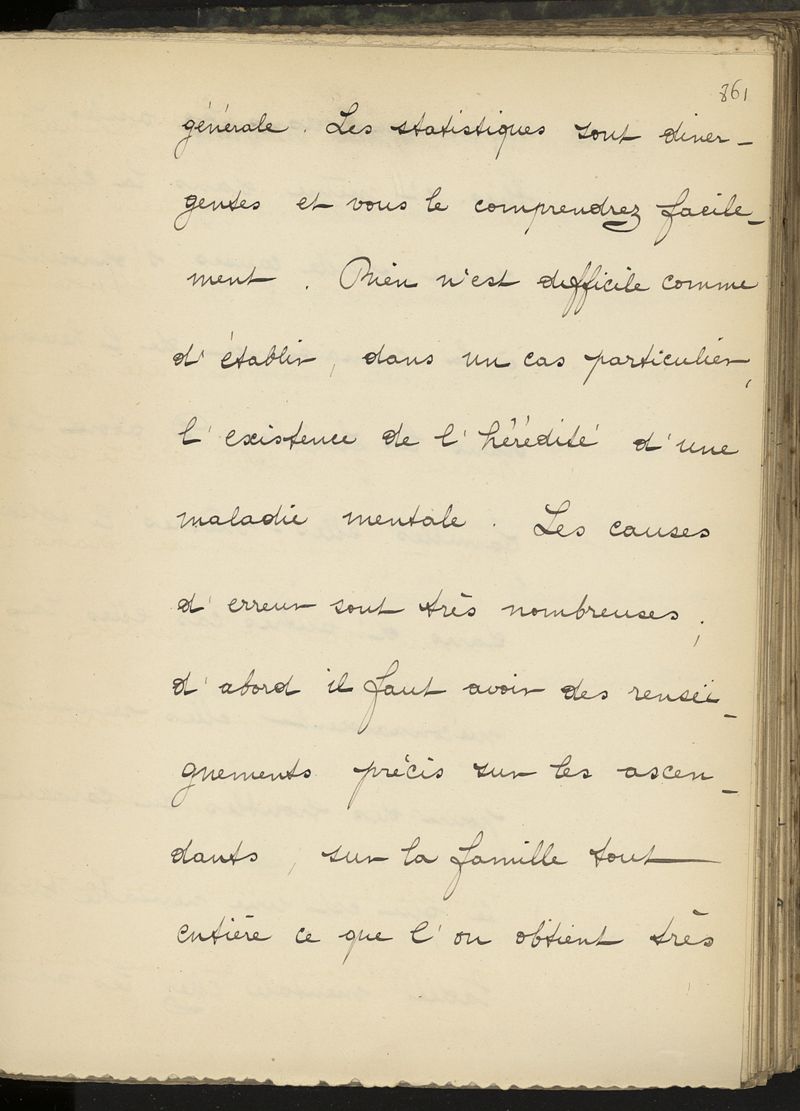 861
générale. Les statistiques sont diver-
gentes et vous le comprendrez facile-
ment. Rien n'est difficile comme
d'établir, dans un cas particulier,
l'existence de l'hérédité d'une
maladie mentale. Les causes
d'erreur sont très nombreuses;
d'abord il faut avoir des rensei-
gnements précis sur les ascen-
dants, sur la famille tout
entière ce que l'on obtient très